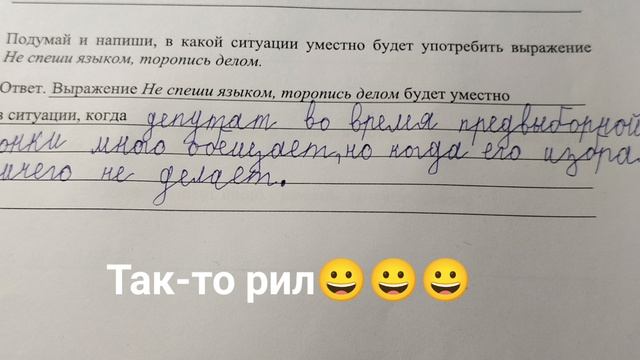 Подумай и напиши, в какой ситуации уместно будет употребить выражение
Не спеши языком, торопись делом.
Ответ. Выражение Не спеши языком, торопись делом будет уместно
в ситуации, когда депутат во время предвыборной
онки много обещает, но когда его избра
ичего не делает.
Так-то рил😀😀😀